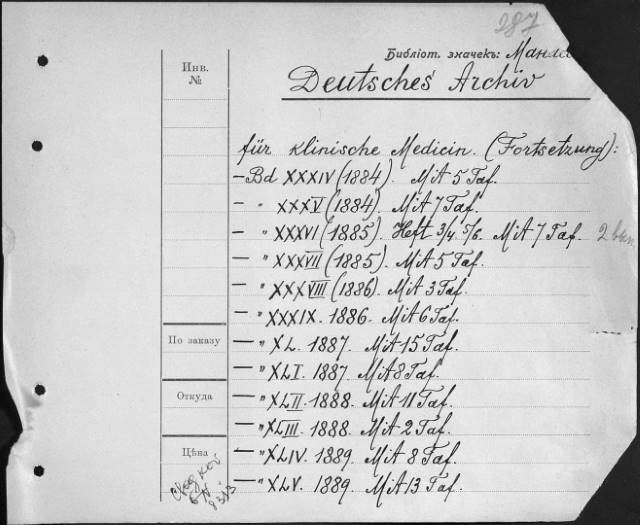 287
Библіот. значекъ:
Инв. №
Deutsches Archiv
für klinische Medicin. (Fortsetzung):
— Bd XXXIV (1884). Mit 5 Taf.
— " XXXV (1884). Mit 7 Taf.
— " XXXVI (1885). Heft 3/4. 5/6. Mit 7 Taf.
— " XXXVII (1885). Mit 5 Taf.
— " XXXVIII (1886). Mit 3 Taf.
— " XXXIX. 1886. Mit 6 Taf.
По заказу
— " XL. 1887. Mit 15 Taf.
— " XLI. 1887. Mit 8 Taf.
Откуда
— " XLII. 1888. Mit 11 Taf.
— " XLIII. 1888. Mit 2 Taf.
Цѣна
— " XLIV. 1889. Mit 8 Taf.
— " XLV. 1889. Mit 13 Taf.